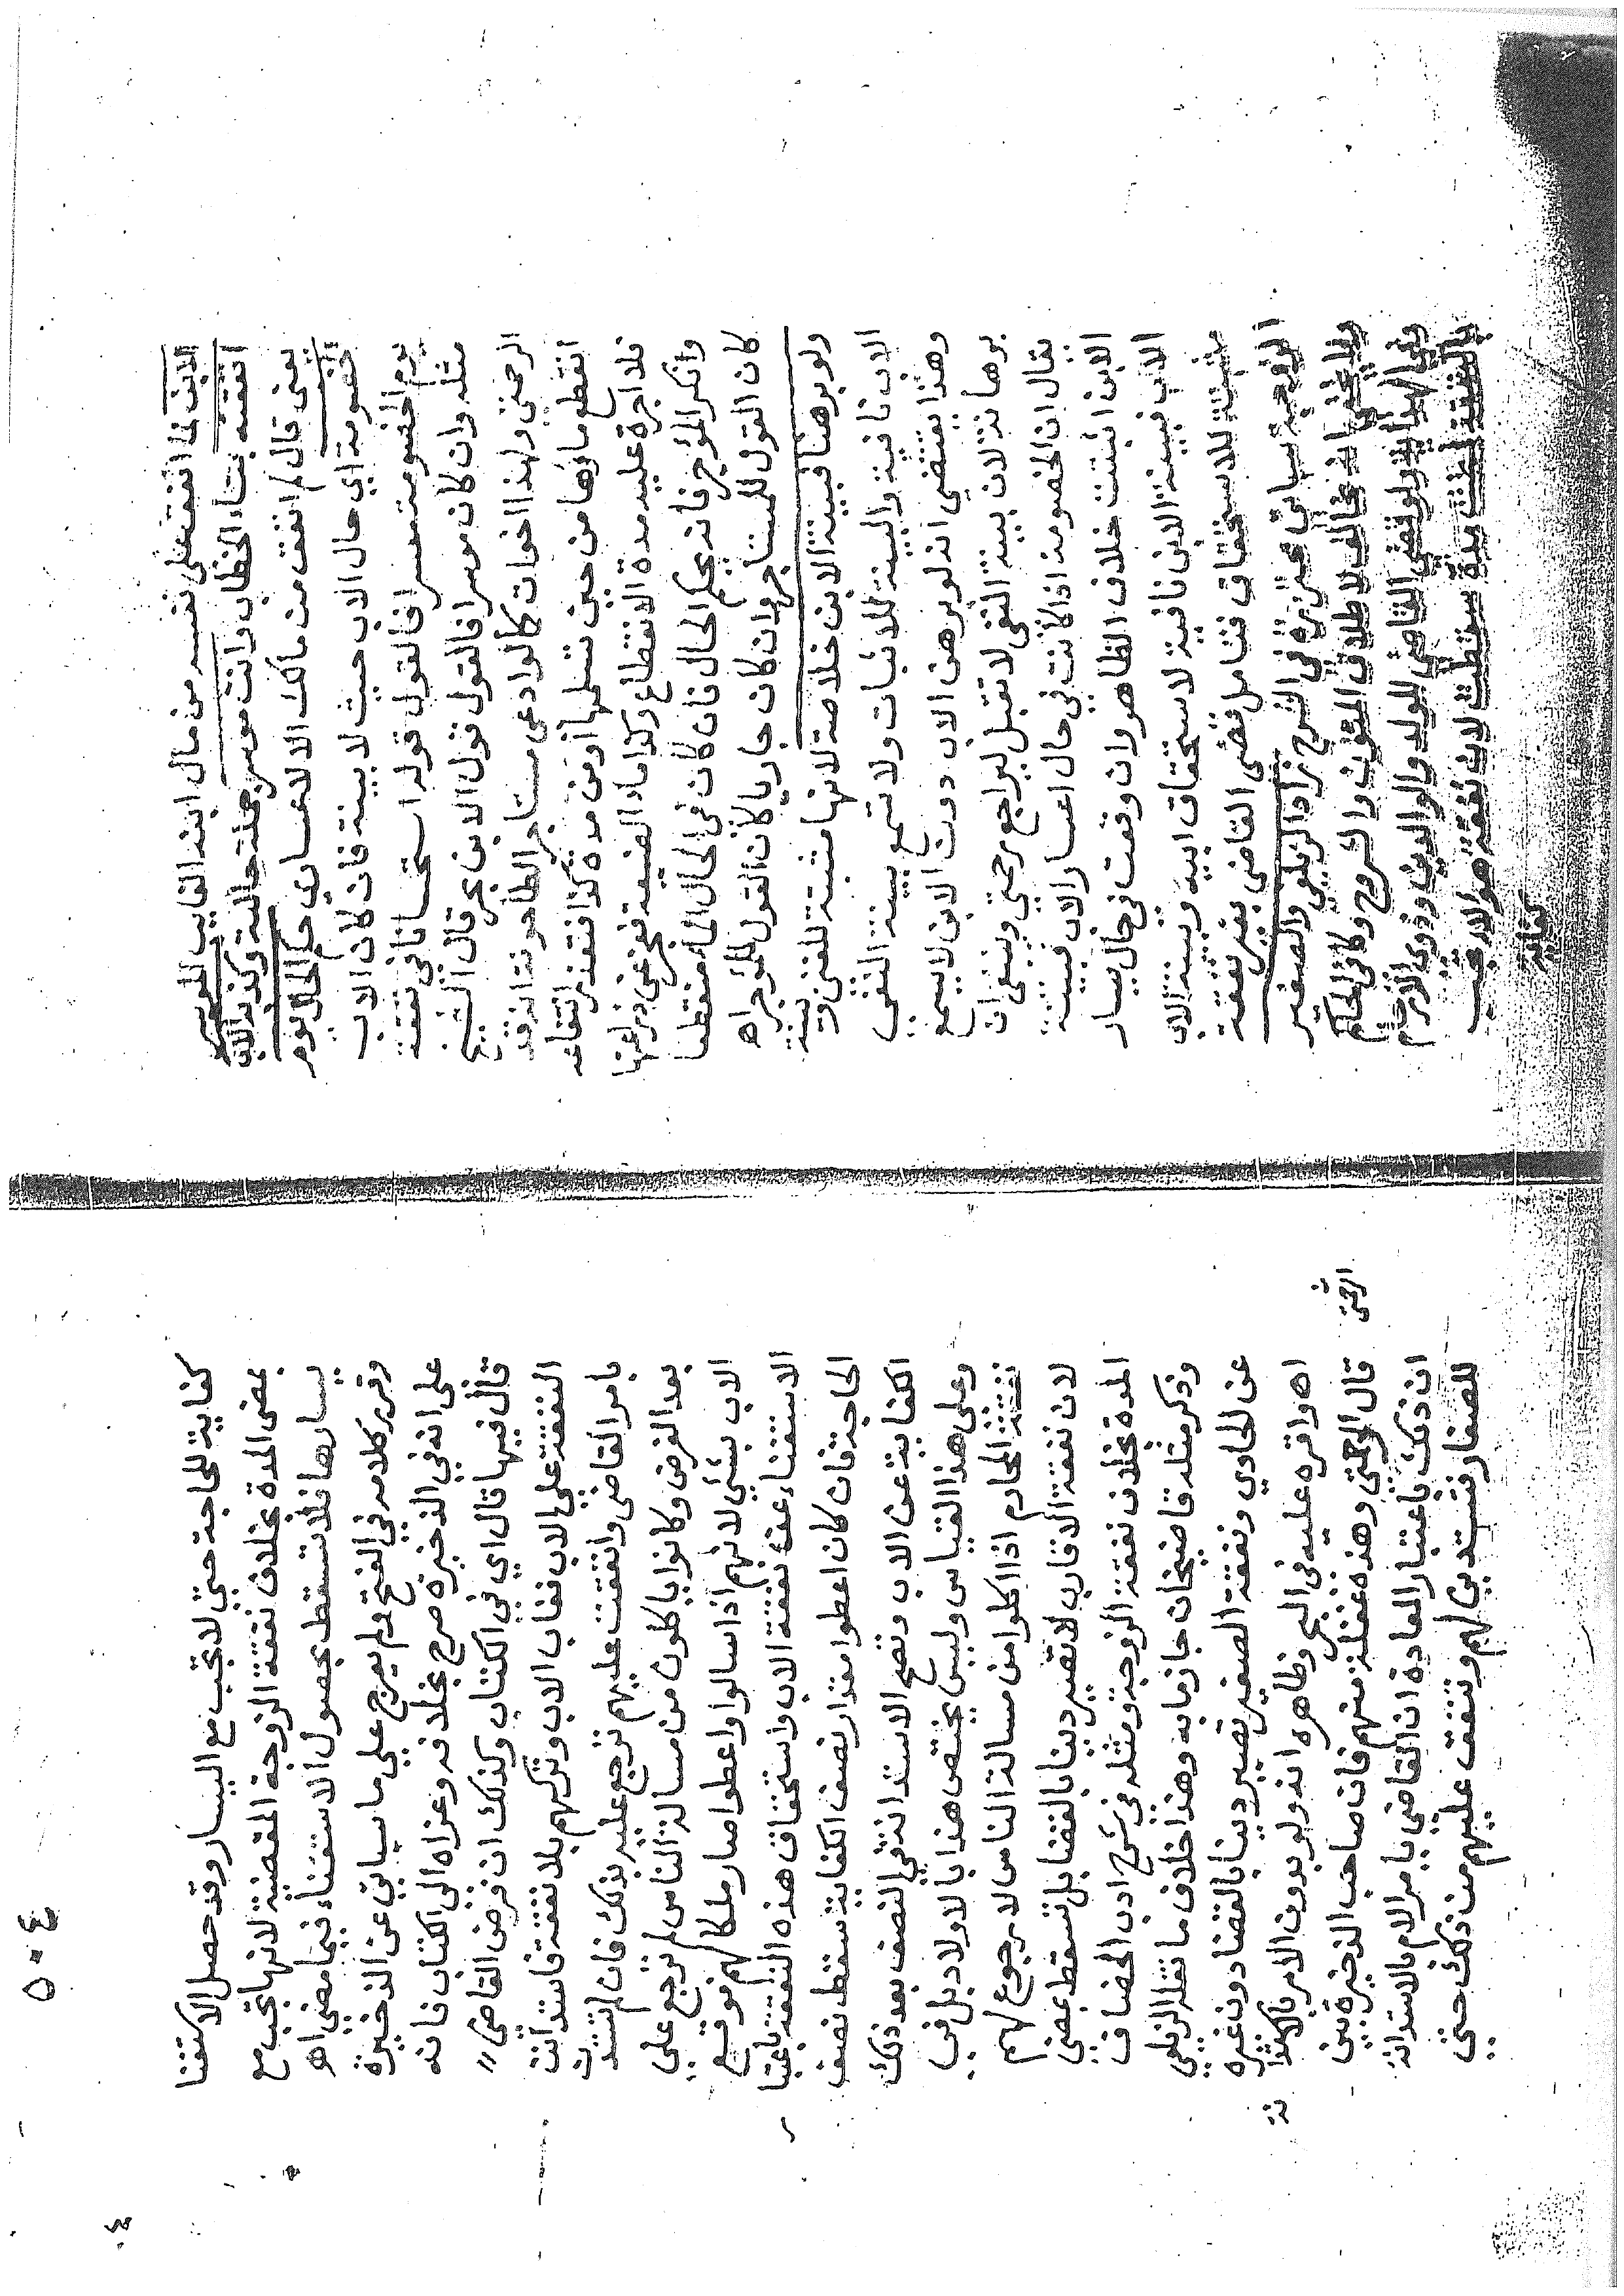 الابن لما انفقت على نفسه من مال ابنه الغايب الموسر
انفقته بتاء الخطاب وانت موسر جملة حالية وكذبه الابن
يعني قال لم انفق من مالك الا لاعساري حكم الحال يوم
الخصومة اي حال الاب حيث لا بينة فان كان الاب
يوم الخصومة معسرا فالقول قوله استحسانا في نفقة
مثله وان كان موسرا فالقول قول الابن بحر قال الشيخ
الرحمتي ولهذا اخوات كما لو ادعى مستاجر الطاحونة انه قد
انقطع ماؤها من حين تسلمها او من مدة كذا فتعذر انتفاعه
فلا اجرة عليه مدة الانقطاع وكذا ماء الضيعة فعجز عن زرعها
وانكر المؤجر فانه يحكم الحال فان كان في الحال الماء منقطعا
كان القول للمستاجر وان كان جاريا كان القول للمؤجر اه
ولو برهنا فبينة الابن خلاصة لانها مثبتة للغنى وبينة
الاب نافية والبينة للاثبات ولا تسمع بينة النفي
وهذا يقتضي انه لو برهن الاب دون الابن لا يسمع
برهانه لان بينة النفي لا تقبل ليراجع رحمتي وينبغي ان
يقال ان الخصومة اذا كانت في حال اعسار الاب فبينة
الابن اثبتت خلاف الظاهر وان وقعت في حال يسار
الاب فبينة الابن نافية لاستحقاق ابيه وبينة الاب
مثبتة للاستحقاق فتامل قضى القاضي بغير نفقة
الزوجة سياتي محترزه في الشرح زاد الزيلعي والصغير
ولا يخفى انه مخالف لاطلاق المتون والشروح وكافي الحاكم
وفي الهداية ولو قضى القاضي للولد والوالدين وذوي الارحام
بالنفقة فمضت مدة سقطت لان نفقة هؤلاء تجب
كفاية

٥٠٤
كفاية للحاجة حتى لا تجب مع اليسار وقد حصل الاكتفا
بمضى المدة بخلاف نفقة الزوجة المقضية لانها تجب مع
يسارها فلا تسقط بحصول الاستغناء فيما مضى اه
وقرر كلامه في الفتح ولم يعرج على ما سياتي عن الذخيرة
على انه في الذخيرة صرح بخلافه وعزاه الى الكتاب فانه
قال فيها قال اي في الكتاب وكذلك ان فرض القاضي
النفقة على الاب فغاب الاب وتركهم بلا نفقة فاستدانت
بامر القاضي وانفقت عليهم ترجع عليه بذلك فان لم تستدن
بعد الفرض وكانوا ياكلون من مسالة الناس لم ترجع على
الاب بشئ لانهم اذا سالوا واعطوا صار ملكا لهم فوقع
الاستغناء عن نفقة الاب واستحقاق هذه النفقة باعتبار
الحاجة فان كان اعطوا مقدار نصف الكفاية سقط نصف
الكفاية عن الاب وتصح الاستدانة في النصف بعد ذلك
وعلى هذا القياس وليس يختص هذا بالاولاد بل في
نفقة المحارم اذا اكلوا من مسالة الناس لا رجوع لهم
لان نفقة الاقارب لا تصير دينا بالقضا بل تسقط بمضي
المدة بخلاف نفقة الزوجة ومثله في شرح ادب الخصاف
وذكر مثله قاضيخان جازما به وهذا خلاف ما نقله الزيلعي
عن الحاوي ونفقة الصغير تصير دينا بالقضا دون غيره
اه واقره عليه في البحر وظاهره انه ولو بدون الامر بالاستدانة
قال الرحمتي وهذه غفلة منهم فان صاحب الذخيرة بين
ان ذلك باعتبار العادة ان القاضي يامر الام بالاستدانة
للصغار فتستدين لهم وتنفق عليهم من ذلك حتى